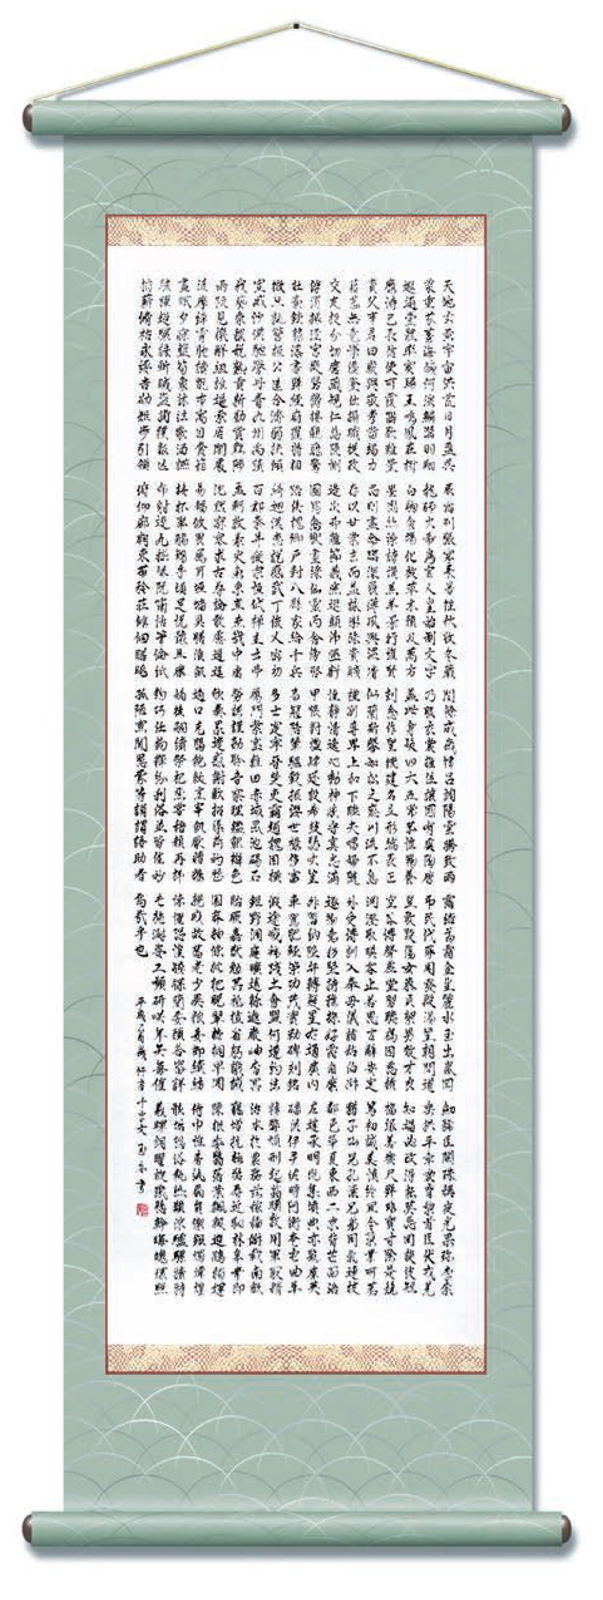 天地玄黃宇宙洪荒日月盈昃辰宿列張寒來暑往秋收冬藏閏餘成歲律呂調陽雲騰致雨露結為霜金生麗水玉出崑岡劍號巨闕珠稱夜光果珍李柰
菜重芥薑海鹹河淡鱗潛羽翔龍師火帝鳥官人皇始制文字乃服衣裳推位讓國有虞陶唐弔民伐罪周發殷湯坐朝問道垂拱平章愛育黎首臣伏戎羌
遐邇壹體率賓歸王鳴鳳在樹白駒食場化被草木賴及萬方蓋此身髮四大五常恭惟鞠養豈敢毀傷女慕貞潔男效才良知過必改得能莫忘罔談彼短
靡恃己長信使可覆器欲難量墨悲絲染詩讚羔羊景行維賢剋念作聖德建名立形端表正空谷傳聲虛堂習聽禍因惡積福緣善慶尺璧非寶寸陰是競
資父事君曰嚴與敬孝當竭力忠則盡命臨深履薄夙興溫清似蘭斯馨如松之盛川流不息淵澄取映容止若思言辭安定篤初誠美慎終宜令榮業所基
藉甚無竟學優登仕攝職從政存以甘棠去而益詠樂殊貴賤禮別尊卑上和下睦夫唱婦隨外受傅訓入奉母儀諸姑伯叔猶子比兒孔懷兄弟同氣連枝
交友投分切磨箴規仁慈隱惻造次弗離節義廉退顛沛匪虧性靜情逸心動神疲守真志滿逐物意移堅持雅操好爵自縻都邑華夏東西二京背芒面洛
浮渭據涇宮殿盤鬱樓觀飛驚圖寫禽獸畫綵仙靈丙舍傍啟甲帳對楹肆筵設席鼓瑟吹笙升階納陛弁轉疑星右通廣內左達承明既集墳典亦聚群英
杜稾鍾隸漆書壁經府羅將相路俠槐卿戶封八縣家給千兵高冠陪輦驅轂振纓世祿侈富車駕肥輕策功茂實勒碑刻銘磻溪伊尹佐時阿衡奄宅曲阜
微旦孰營桓公匡合濟弱扶傾綺迴漢惠說感武丁俊乂密勿多士寔寧晉楚更霸趙魏困橫假途滅虢踐土會盟何遵約法韓弊煩刑起翦頗牧用軍最精
宣威沙漠馳譽丹青九州禹跡百郡秦并嶽宗恆岱禪主云亭雁門紫塞雞田赤城昆池碣石鉅野洞庭曠遠綿邈巖岫杳冥治本於農務茲稼穡俶載南畝
我藝黍稷稅熟貢新勸賞黜陟孟軻敦素史魚秉直庶幾中庸勞謙謹敕聆音察理鑑貌辨色貽厥嘉猷勉其祗植省躬譏誡寵增抗極殆辱近恥林皋幸即
兩疏見機解組誰逼索居閑處沉默寂寥求古尋論散慮逍遙欣奏累遣慼謝歡招渠荷的歷園莽抽條枇杷晚翠梧桐早凋陳根委翳落葉飄颻遊鵾獨運
凌摩絳霄耽讀翫市寓目囊箱易輶攸畏屬耳垣牆具膳飡飯適口充腸飽飫烹宰飢厭糟糠親戚故舊老少異糧妾御績紡侍巾帷房紈扇員潔銀燭煒煌
晝眠夕寐藍筍象床弦歌酒讌接杯舉觴矯手頓足悅豫且康嫡後嗣續祭祀烝嘗稽顙再拜悚懼恐惶牋牒簡要顧答審詳骸垢想浴執熱願涼驢騾犢特
駭躍超驤誅斬賊盜捕獲叛亡布射遼丸嵇琴阮嘯恬筆倫紙鈞巧任釣釋紛利俗並皆佳妙毛施淑姿工顰妍笑年矢每催羲暉朗曜璇璣懸斡晦魄環照
指薪修祜永綏吉劭矩步引領俯仰廊廟束帶矜莊徘徊瞻眺孤陋寡聞愚蒙等誚謂語助者焉哉乎也
平成 千字文 玉 書